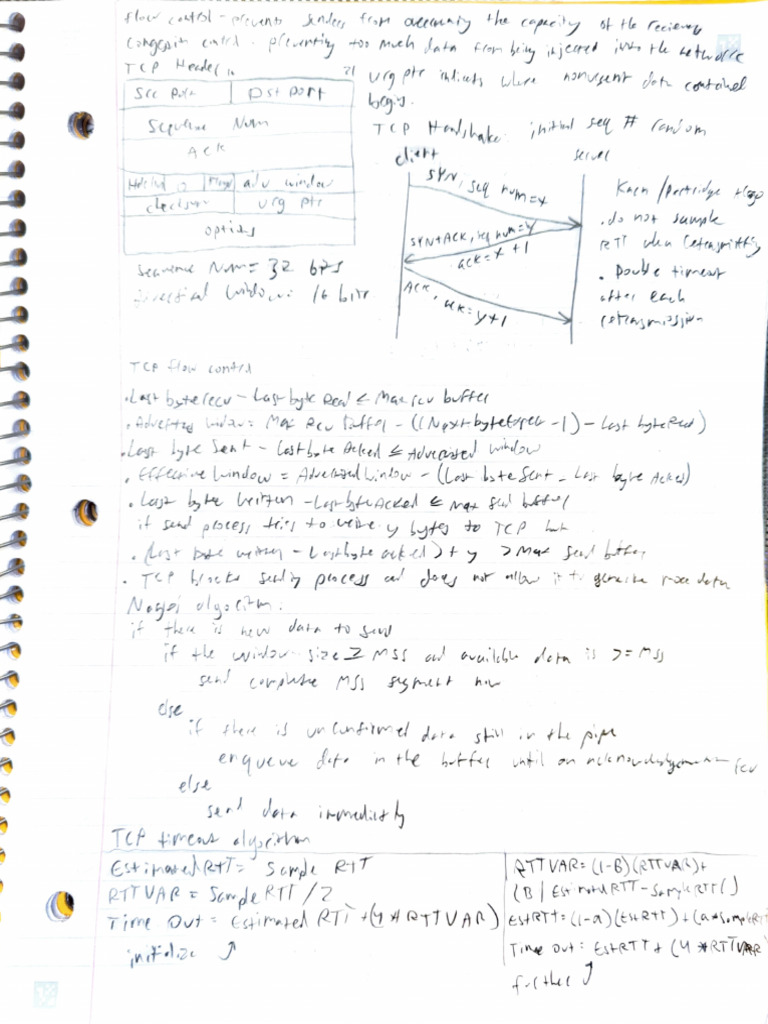 flow control - prevents senders from overrunning the capacity of the recievers
congestion control - preventing too much data from being injected into the network
TCP Header
Src Port
Dst port
Sequence Num
Ack
Hdrlen
0
Flags
adv window
checksum
urg ptr
options
sequence Num = 32 bits
window: 16 bits
urg ptr indicates where nonurgent data contained
begins.
TCP Handshake: initial seq # random
client
server
SYN, seq num = x
SYN+ACK, seq num = y
ack = x + 1
ACK, ack = y+1
Karn / Partridge
. do not sample
RTT when retransmitting
. Double timeout
after each
retransmission
TCP flow control
. Last byte recv - Last byte Read ≤ Max rcv buffer
. Advertised window = Max Rcv Buffer - ((Next byte Expec - 1) - Last byte Read)
. Last byte Sent - Last byte Acked ≤ Advertised window
. Effective window = Advertised window - (Last byte Sent - Last byte Acked)
. Last byte written - Last byte Acked ≤ Max send buffer
if send process tries to write y bytes to TCP but
. (Last byte written - Last byte acked) + y > Max Send buffer
. TCP blocks sending process and does not allow it to generate more data
algorithm:
if there is new data to send
if the window size ≥ MSS and available data is >= MSS
send complete MSS segment now
else
if there is unconfirmed data still in the pipe
enqueue data in the buffer until an acknowledgement
else
send data immediatly
TCP timeout algorithm
Estimated RTT = Sample RTT
RTTVAR = Sample RTT / 2
Time Out = Estimated RTT + (4 * RTTVAR)
initialize ↑
RTTVAR = (1-B)(RTTVAR) +
(B | Estimated RTT - Sample RTT |)
EstRTT = (1-a)(EstRTT) + (a * Sample RTT)
Time out = EstRTT + (4 * RTTVAR)
further ↑